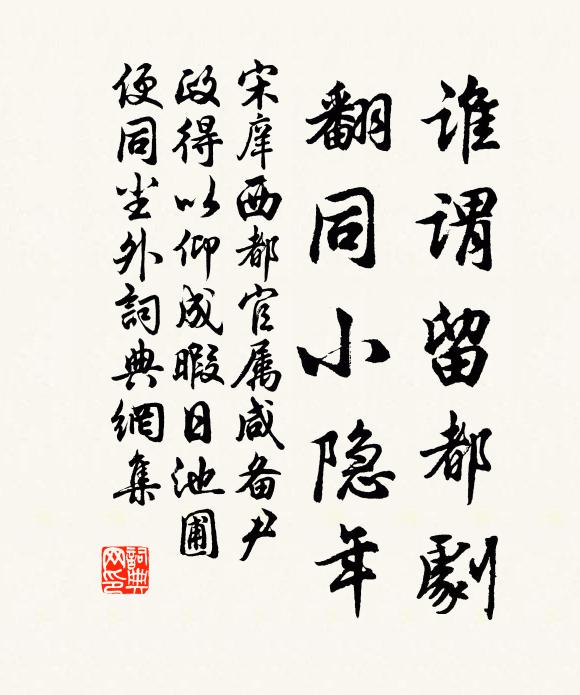 谁谓留都劇
翻同小隐年
宋庠西都官属咸备尹
政得以仰成暇日池圃
便同尘外詞典網集
詞典网印